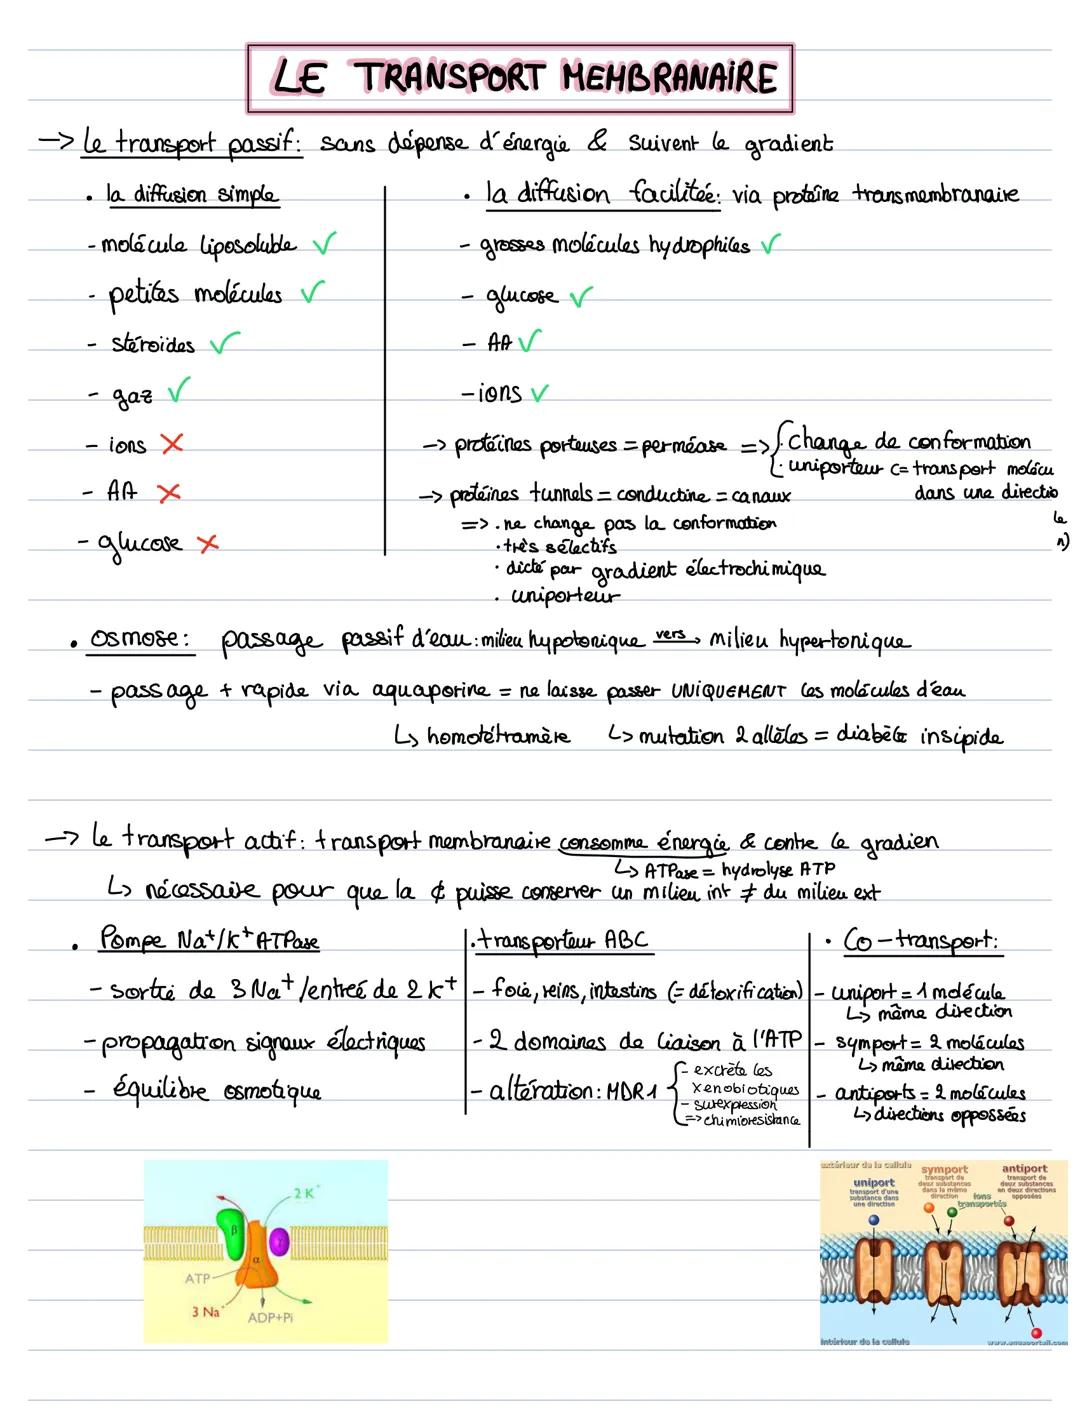 LE TRANSPORT MEMBRANAIRE
-> Le transport passif: sans dépense d'énergie & suivent le gradient
• la diffusion simple
- molécule liposoluble ✓
- petites molécules ✓
- stéroïdes ✓
- gaz ✓
- ions ✗
- AA ✗
- glucose ✗
• la diffusion facilitée: via protéine transmembranaire
- grosses molécules hydrophiles ✓
- glucose ✓
- AA ✓
- ions ✓
-> protéines porteuses = perméase => { · Change de conformation
· uniporteur (= transport molécu
dans une directio
le
n)
-> protéines tunnels = conductine = canaux
=> · ne change pas la conformation
· très sélectifs
· dicté par gradient électrochimique
· uniporteur
• osmose: passage passif d'eau: milieu hypotonique vers → milieu hypertonique
- passage + rapide via aquaporine = ne laisse passer UNIQUEMENT les molécules d'eau
↳ homotétramère ↳ mutation 2 allèles = diabète insipide
-> Le transport actif: transport membranaire consomme énergie & contre le gradien
↳ ATPase = hydrolyse ATP
↳ nécessaire pour que la ¢ puisse conserver un milieu int ≠ du milieu ext
• Pompe Na+/K+ ATPase
- sortie de 3 Na+ /entreé de 2 K+
- propagation signaux électriques
- équilibre osmotique
• transporteur ABC
- foie, reins, intestins (= détoxification)
- 2 domaines de liaison à l'ATP
- altération: MDR1 { - excrète les
xenobiotiques
- surexpression
=> chimiorésistance
• Co-transport:
- uniport = 1 molécule
↳ même direction
- symport = 2 molécules
↳ même direction
- antiports = 2 molécules
↳ directions oppossées
2 K+
β
γ
α
ATP
3 Na+
ADP+Pi
extérieur de la cellule
uniport
transport d'une
substance dans
une direction
symport
transport de
deux substances
dans la même
direction
ions
transportés
antiport
transport de
deux substances
en deux directions
opposées
intérieur de la cellule